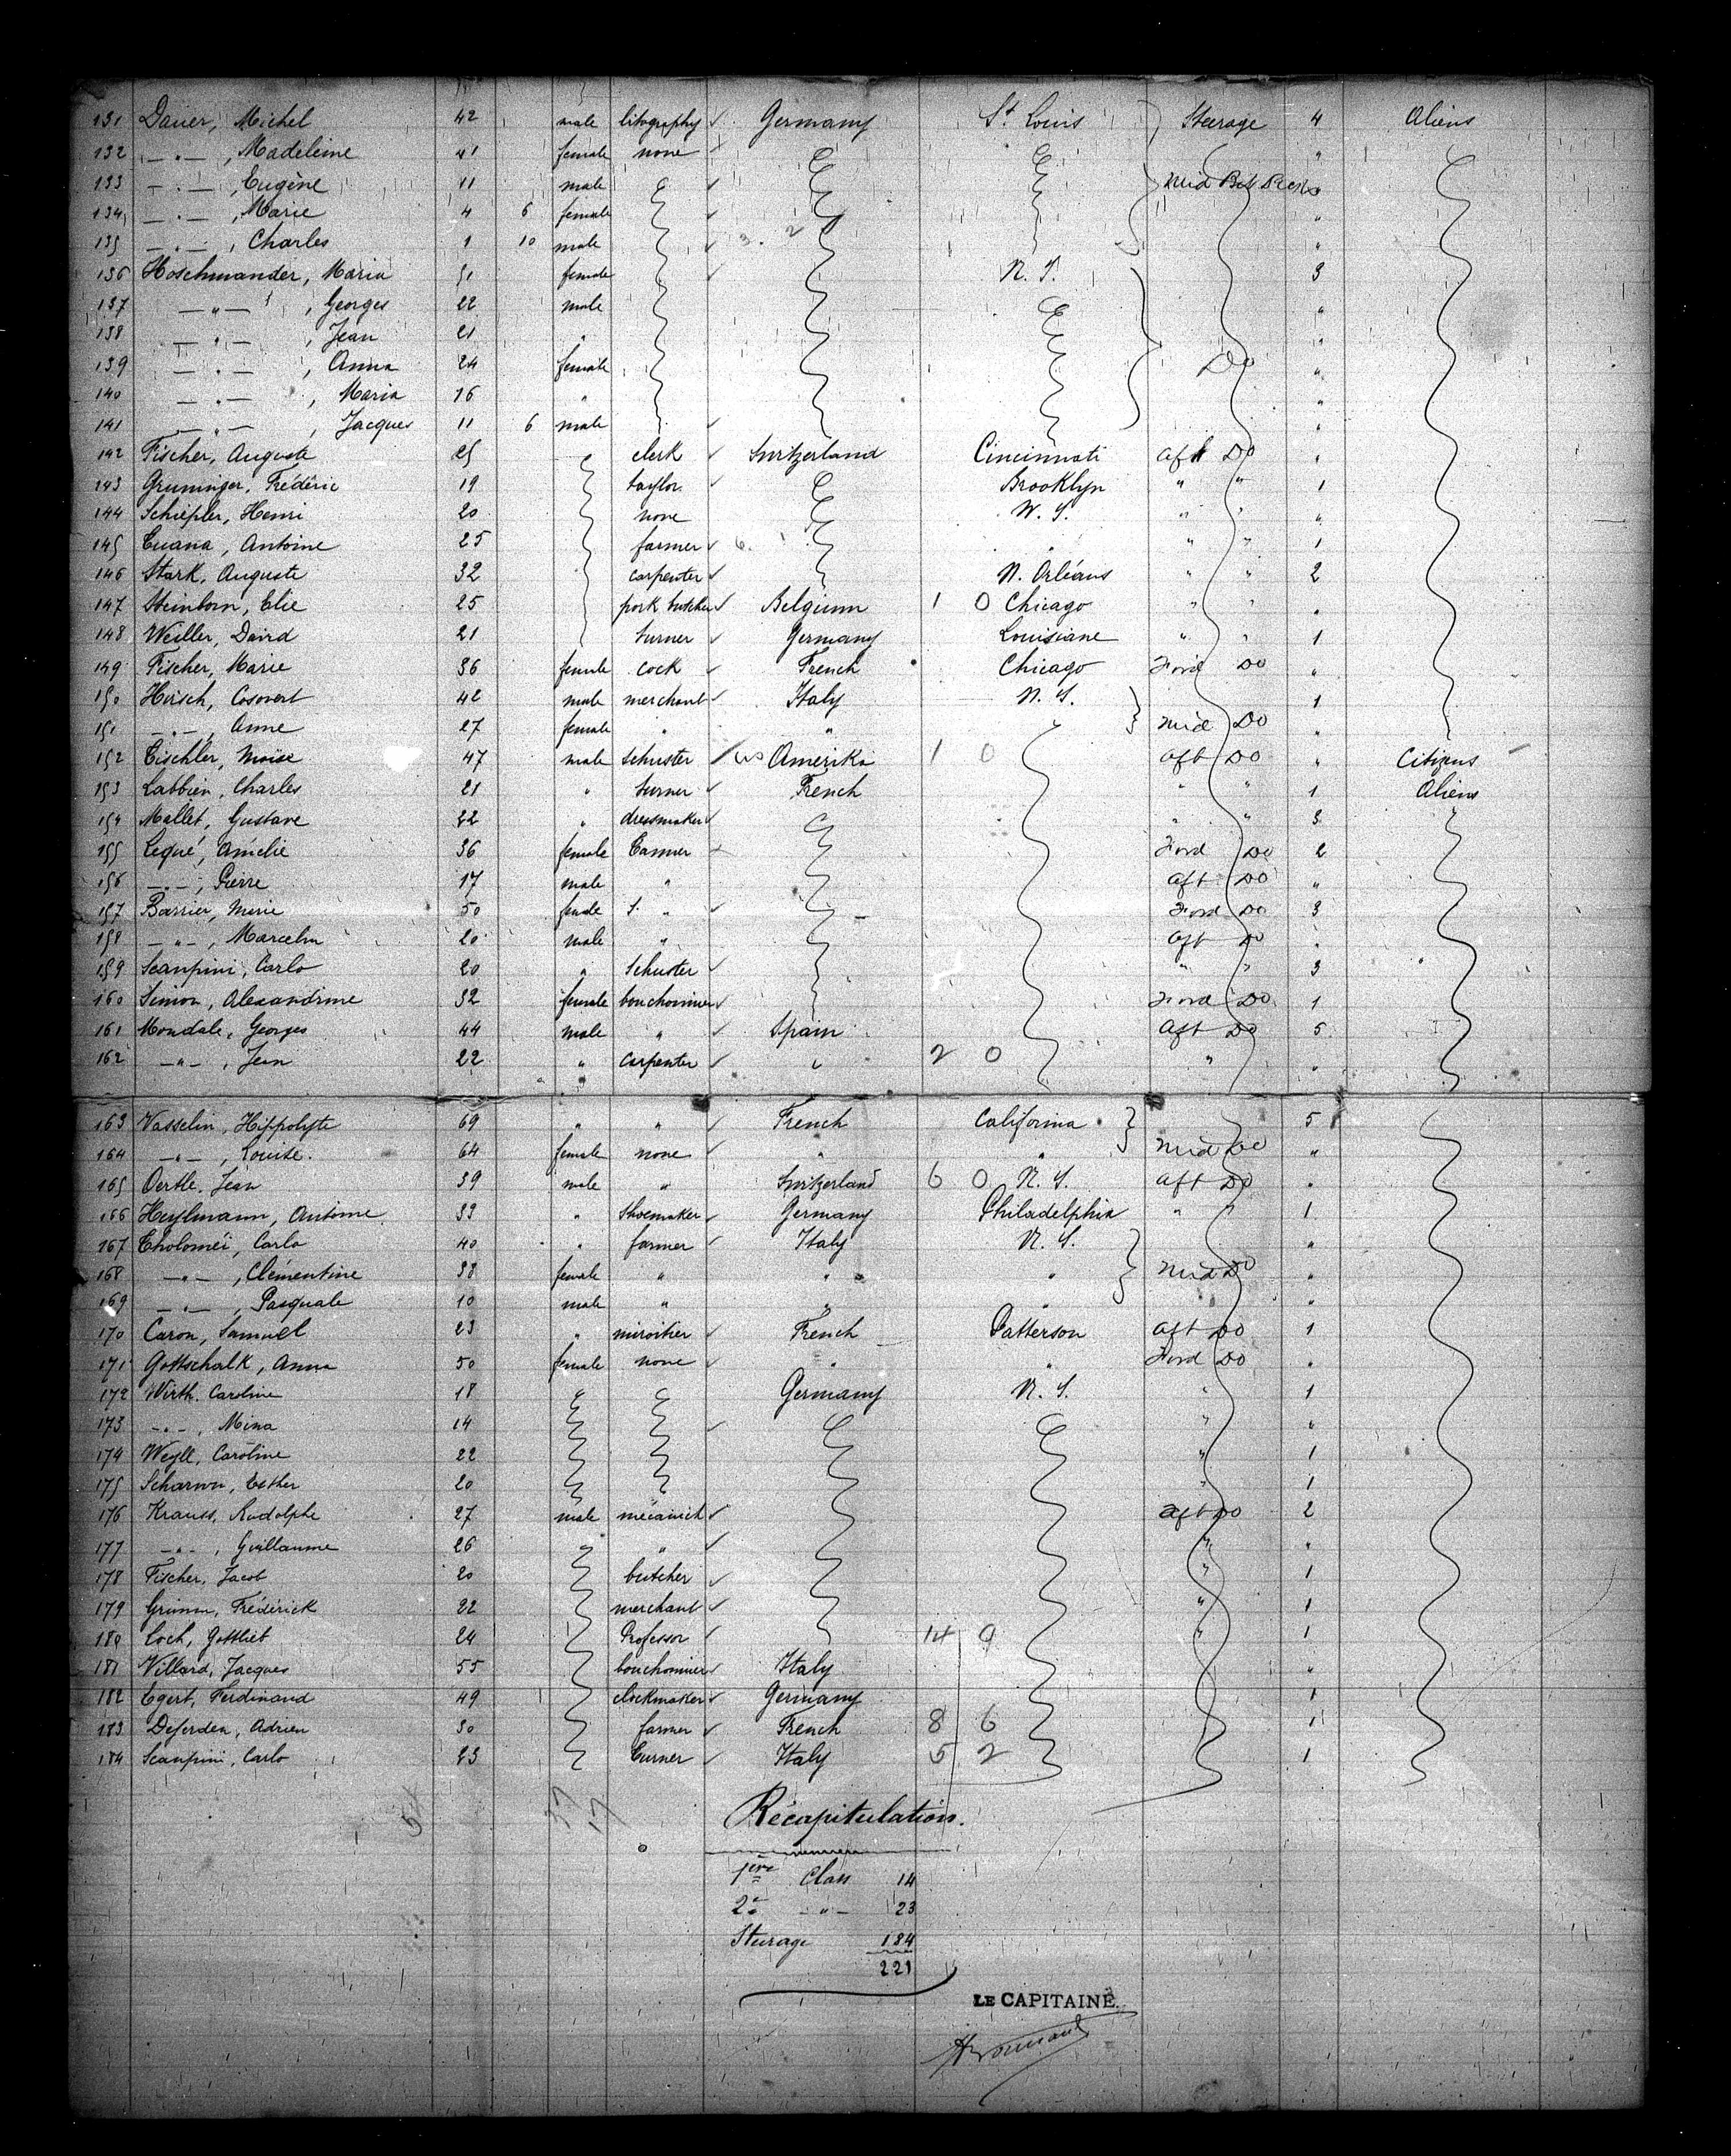 131 Dauer, Michel 42 male litography Germany St Louis Steerage 4 Aliens
132 — " — , Madeleine 41 female none "
133 — " — , Eugène 11 male Mid Bet Decks "
134 — " — , Marie 4 6 female "
135 — " — , Charles 1 10 male 3. 2 "
136 Hoschmander, Maria 51 female N. Y. 3
137 — " — , Georges 22 male "
138 — " — , Jean 21 " "
139 — " — , Anna 24 female Do "
140 — " — , Maria 16 " "
141 — " — , Jacques 11 6 male "
142 Fischer, Auguste 25 clerk Switzerland Cincinnati Aft Do "
143 Gruninger, Frédéric 19 taylor Brooklyn " " 1
144 Schiepler, Henri 20 none N. Y. " " "
145 Cuana, Antoine 25 farmer 6. 1 " " " 1
146 Stark, Auguste 32 carpenter N. Orléans " " 2
147 Steinborn, Elie 25 pork butcher Belgium 1 0 Chicago " " "
148 Weiller, David 21 turner Germany Louisiane " " 1
149 Fischer, Marie 36 female cock French Chicago Ford Do "
150 Hirsch, Cosovert 42 male merchant Italy N. Y. 1
151 — " — , Anne 27 female " " Mid Do "
152 Tischler, Moïse 47 male Schuster US Amerika 1 0 Aft Do " Citizens
153 Labbien, Charles 21 " turner French " " 1 Aliens
154 Mallet, Gustave 22 " dressmaker " " 3
155 Lequé, Amélie 36 female Tanner Ford Do 2
156 — " — , Pierre 17 male " Aft Do "
157 Barrier, Marie 50 female " Ford Do 3
158 — " — , Marcelin 20 male " Aft Do "
159 Scanpini, Carlo 20 " Schuster " " 3
160 Simon, Alexandrine 32 female bouchonnier Ford Do 1
161 Mondale, Georges 44 male " Spain Aft Do 5
162 — " — , Jean 22 " carpenter " 2 0 " "
163 Vasselin, Hippolyte 69 " " French California 5
164 — " — , Louise. 64 female none " " Mid Do "
165 Oertle, Jean 39 male " Switzerland 6 0 N. Y. Aft Do "
166 Heylmann, Antoine 39 " Shoemaker Germany Philadelphia " " 1
167 Tholoméi, Carlo 40 " farmer Italy N. Y. "
168 — " — , Clémentine 38 female " " " Mid Do "
169 — " — , Pasquale 10 male " " " "
170 Caron, Samuel 23 " miroitier French Patterson Aft Do 1
171 Gottschalk, Anna 50 female none " " Ford Do "
172 Wirth, Caroline 18 Germany N. Y. " 1
173 — " — , Mina 14 " "
174 Weyll, Caroline 22 " 1
175 Scharwn, Esther 20 " 1
176 Krauss, Rudolphe 27 male mécanich Aft Do 2
177 — " — , Guillaume 26 " " " "
178 Fischer, Jacob 20 butcher " 1
179 Grimm, Fréderick 22 merchant " 1
180 Loch, Gottlieb 24 Professor 14 9 " 1
181 Villard, Jacques 55 bouchonnier Italy "
182 Egert, Ferdinand 49 clockmaker Germany 1
183 Deferden, Adrien 30 farmer French 8 6 1
184 Scanpini, Carlo 23 Turner Italy 5 2 1
54 37 17
Récapitulation.
1ère Class 14
2e — " — 23
Steerage 184
221
LE CAPITAINE.